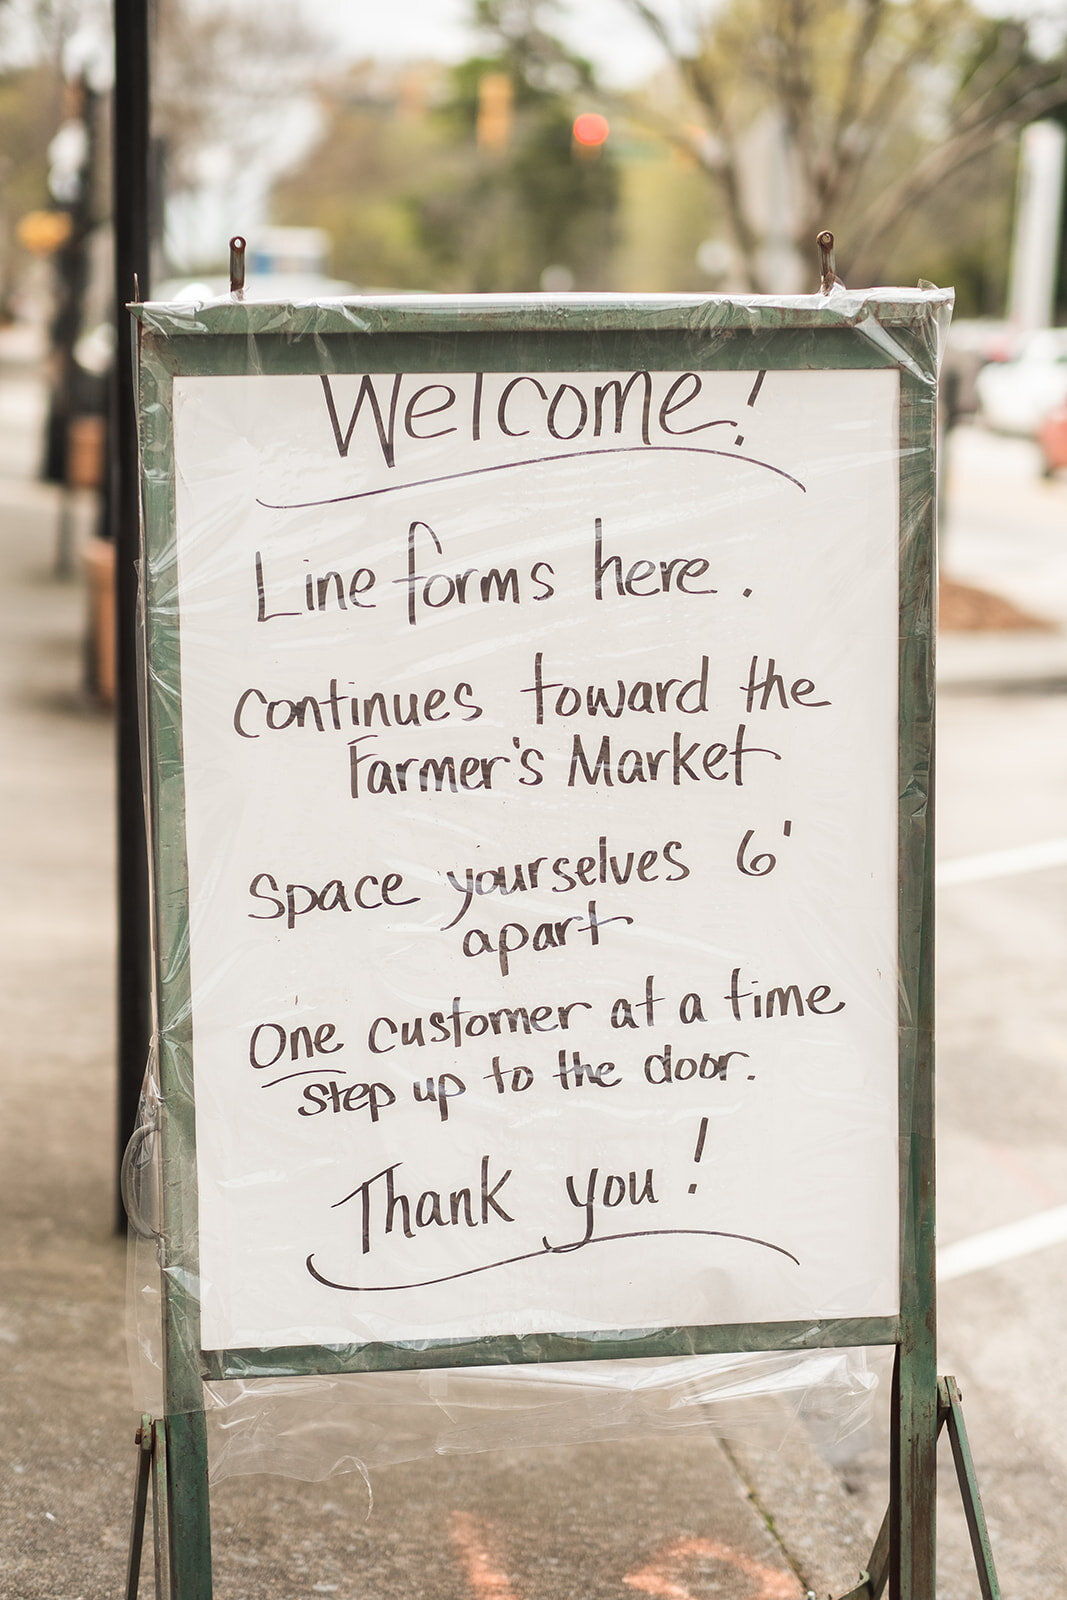 Welcome!
Line forms here.
Continues toward the
Farmer's Market
Space yourselves 6'
apart
One customer at a time
step up to the door.
Thank you!